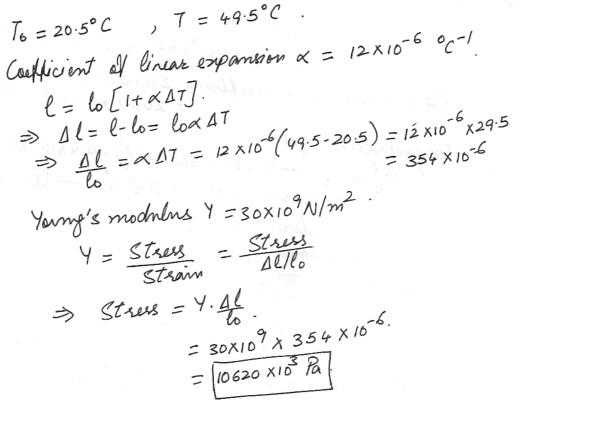 T₀ = 20.5°C , T = 49.5°C .
Coefficient of linear expansion α = 12×10⁻⁶ °C⁻¹.
l = l₀[1+αΔT].
⇒ Δl = l-l₀ = l₀αΔT
⇒ Δl/l₀ = αΔT = 12×10⁻⁶(49.5-20.5) = 12×10⁻⁶×29.5
= 354×10⁻⁶
Young's modulus Y = 30×10⁹N/m².
Y = Stress/Strain = Stress/Δl/l₀
⇒ Stress = Y.Δl/l₀.
= 30×10⁹ × 354×10⁻⁶.
= 10620×10³ Pa